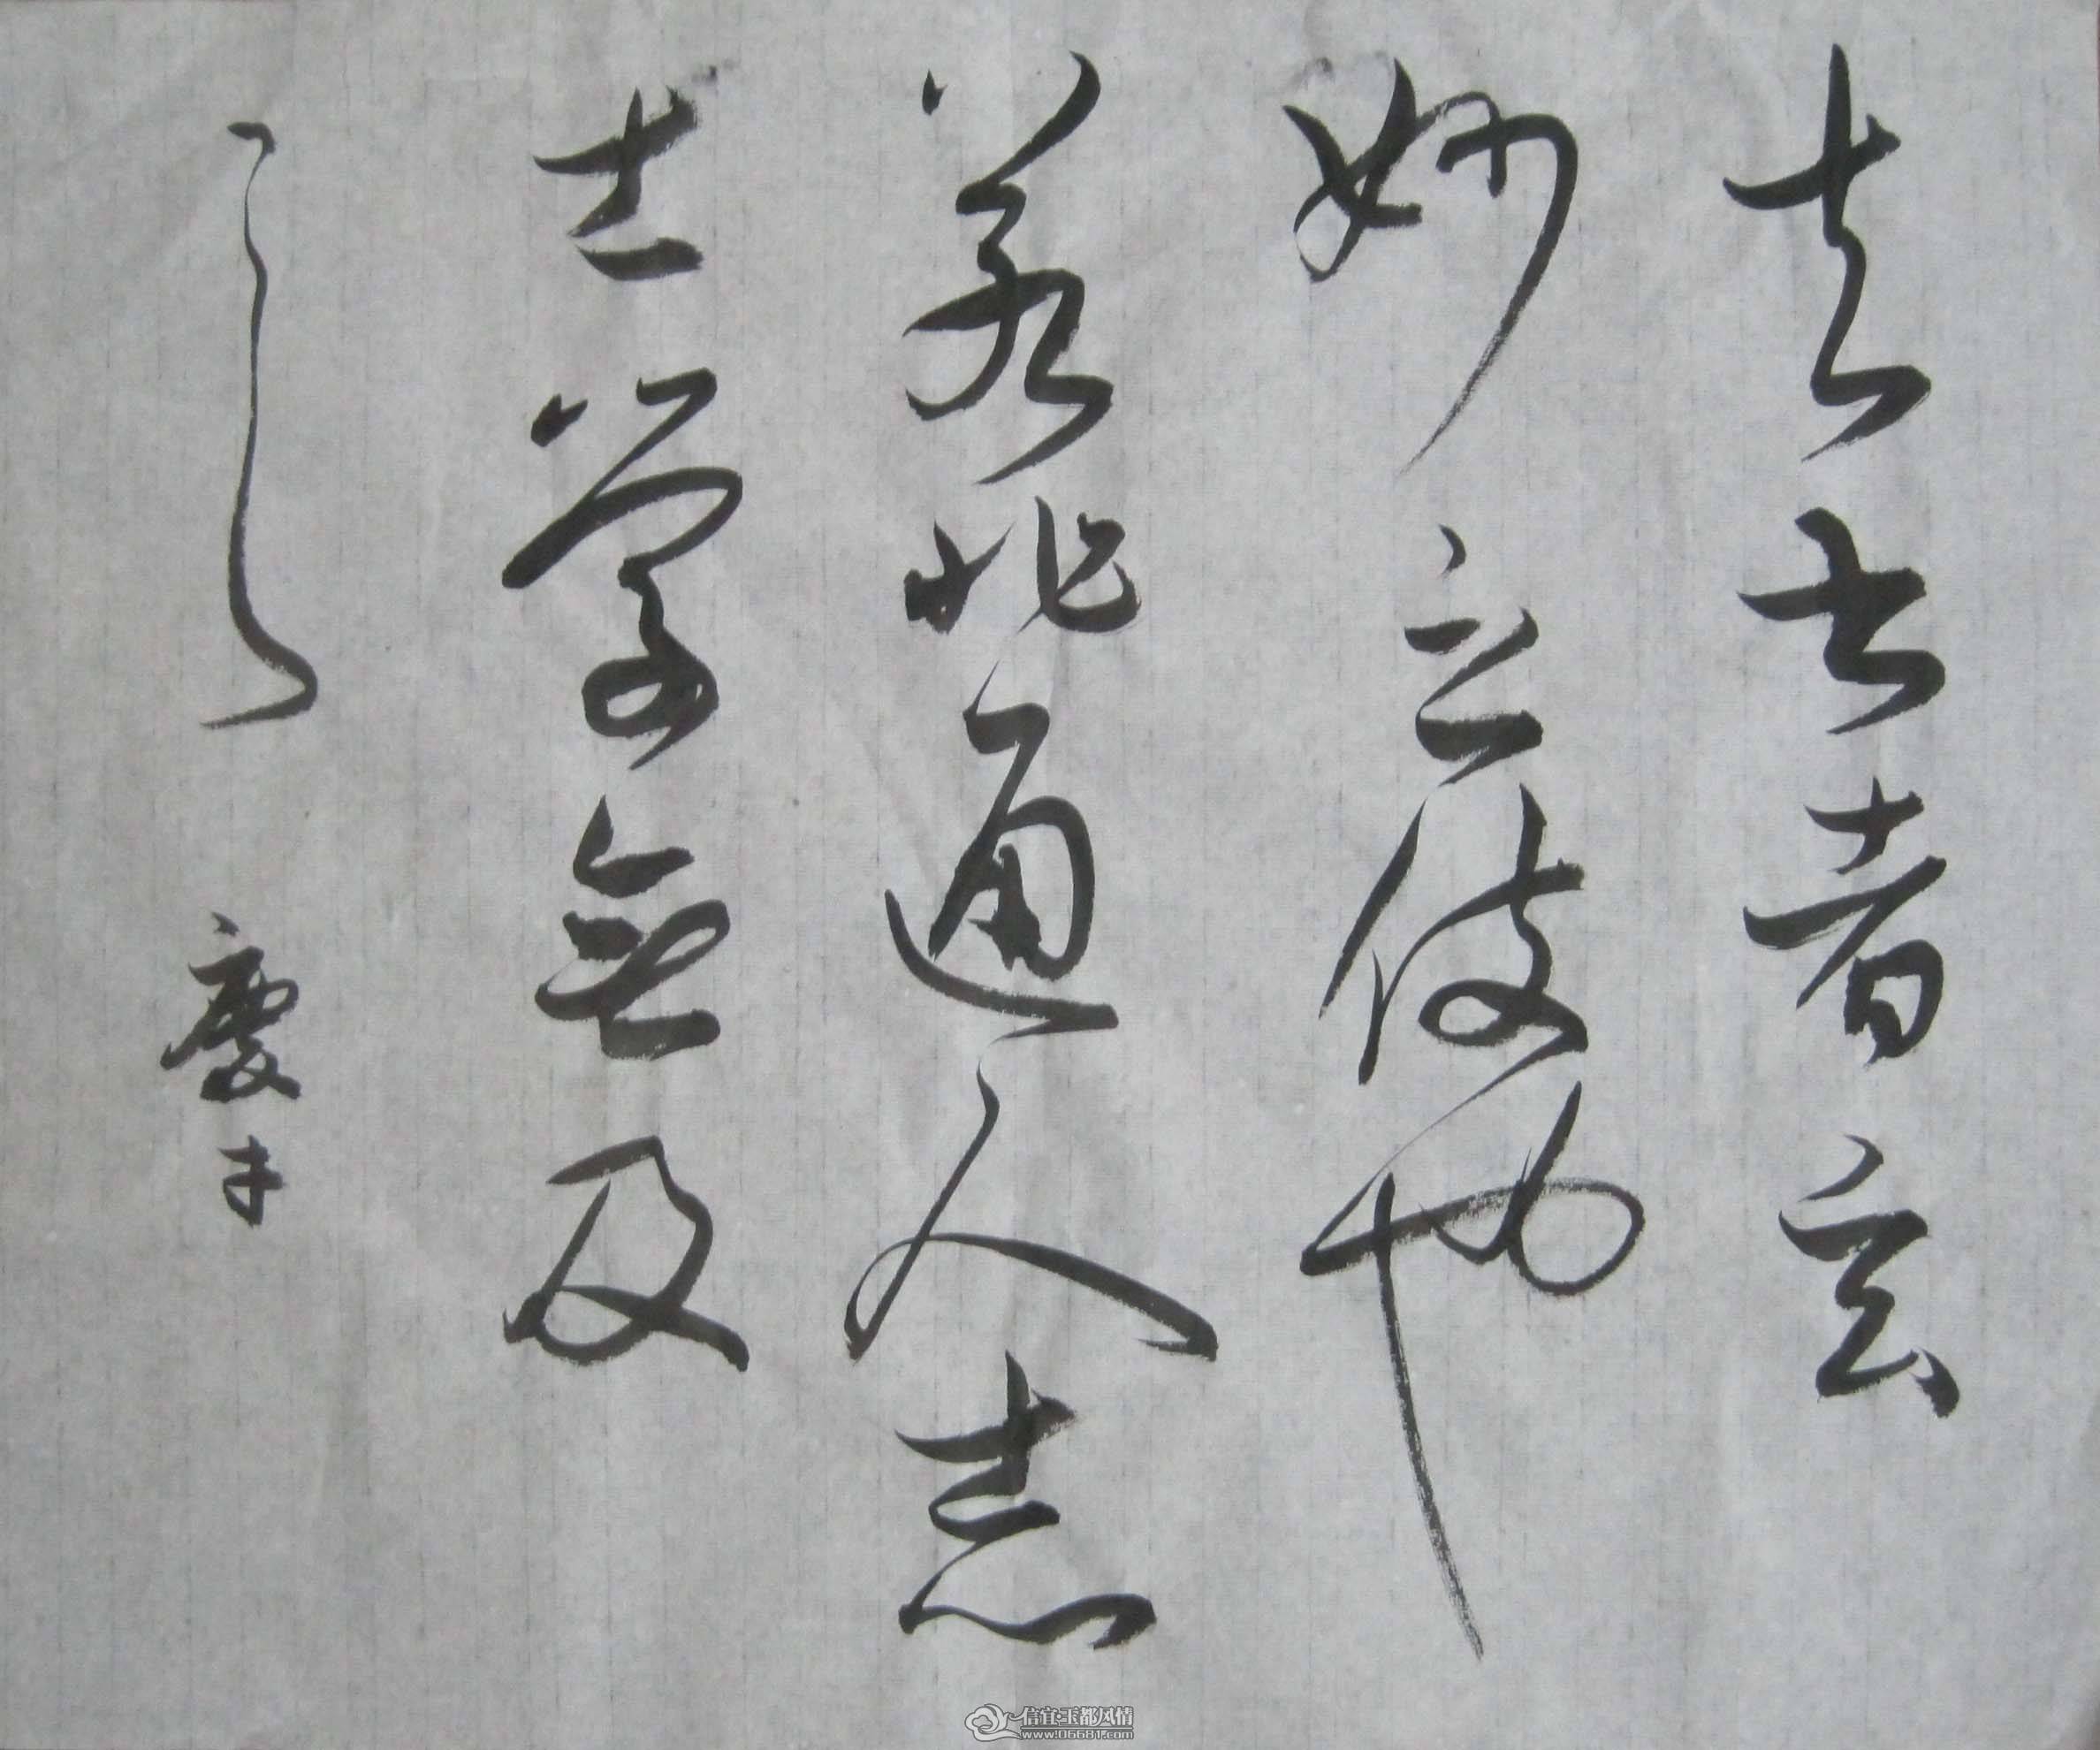 夫書者玄
妙之伎也
若非通人志
士學無及
之 慶才
信宜·玉都风情
www.06681.com